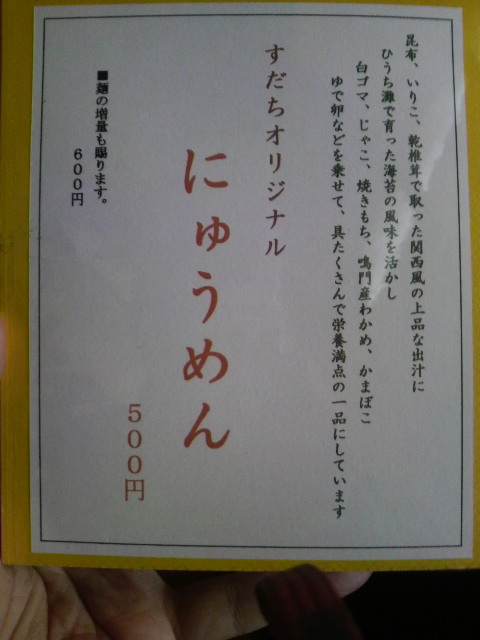 昆布、いりこ、乾椎茸で取った関西風の上品な出汁に
ひうち灘で育った海苔の風味を活かし
白ゴマ、じゃこ、焼きもち、鳴門産わかめ、かまぼこ
ゆで卵などを乗せて、具たくさんで栄養満点の一品にしています
すだちオリジナル
にゅうめん
500円
■麺の増量も賜ります。
600円